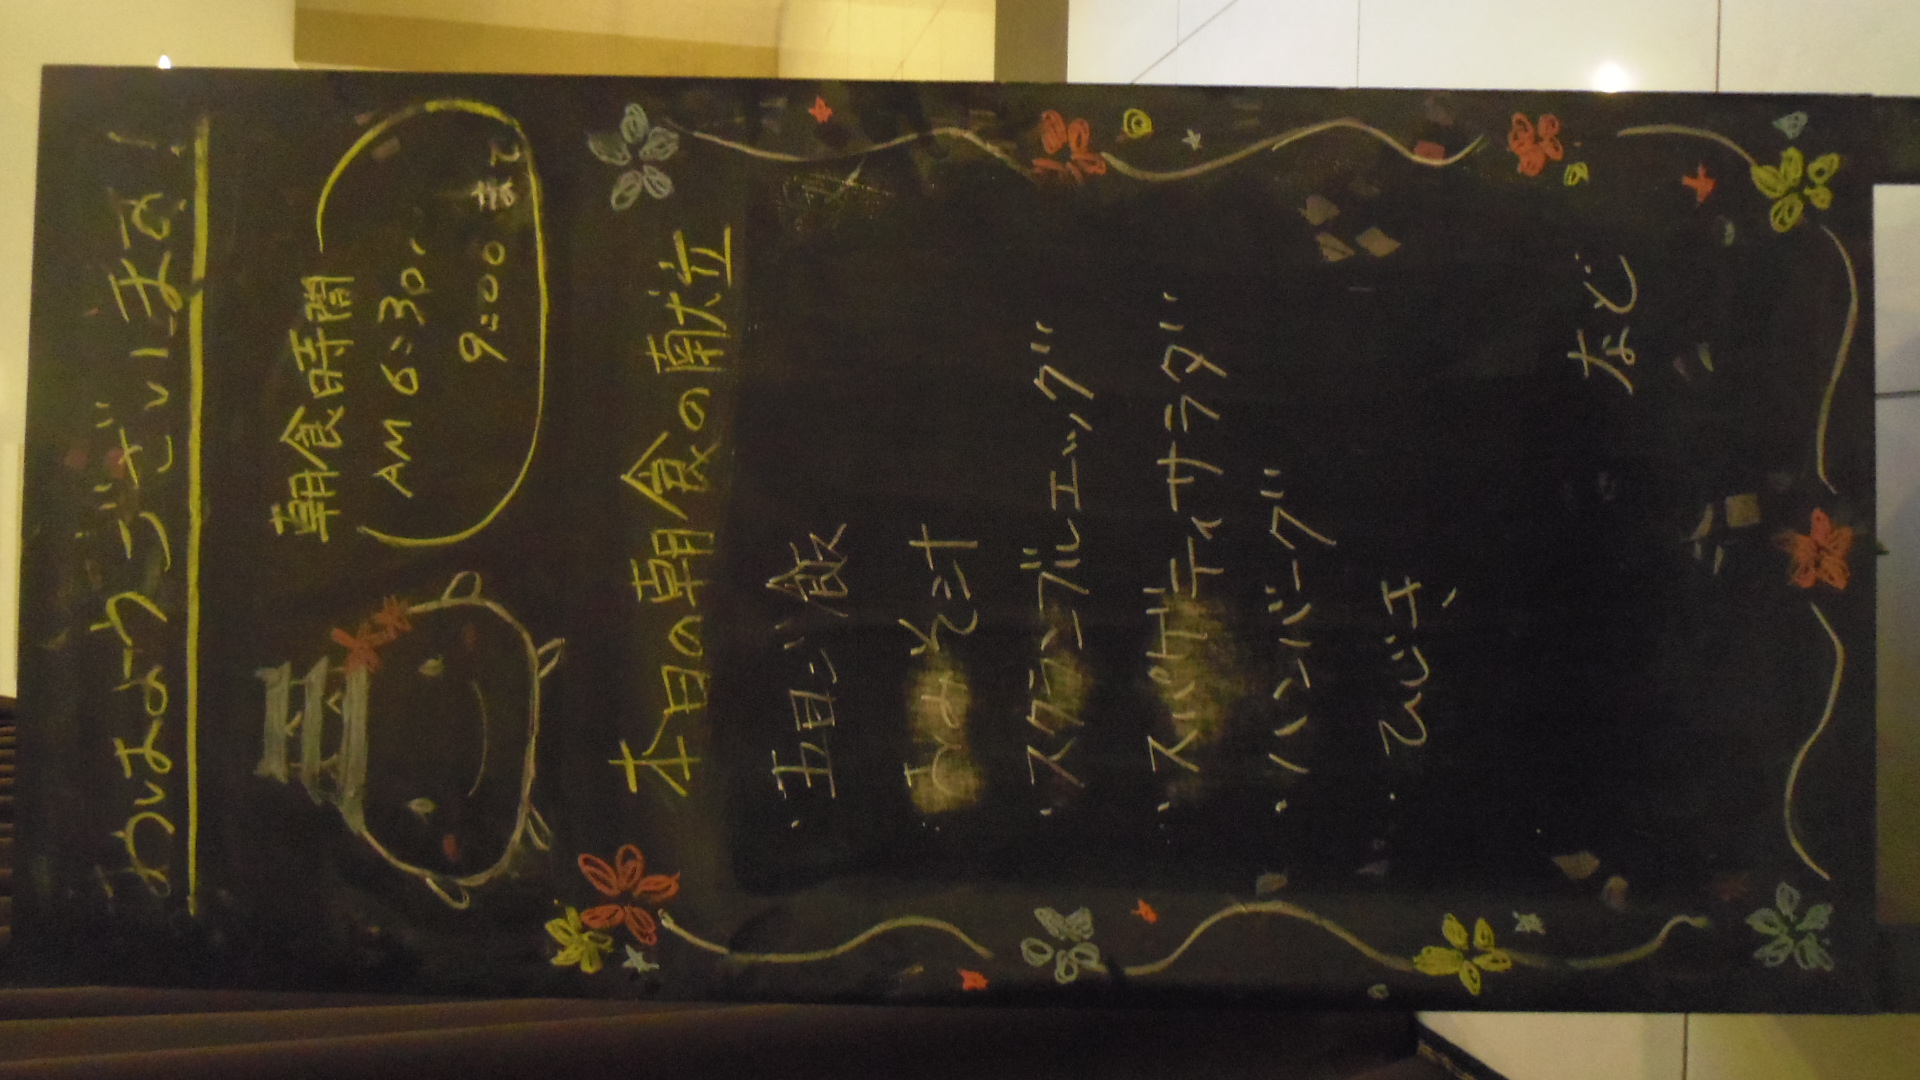 おはようございます!
朝食時間
AM 6:30~
9:00まで
本日の朝食の献立
・五目ご飯
・みそ汁
・スクランブルエッグ
・スパゲティサラダ
・ハンバーグ
・ひじき
など